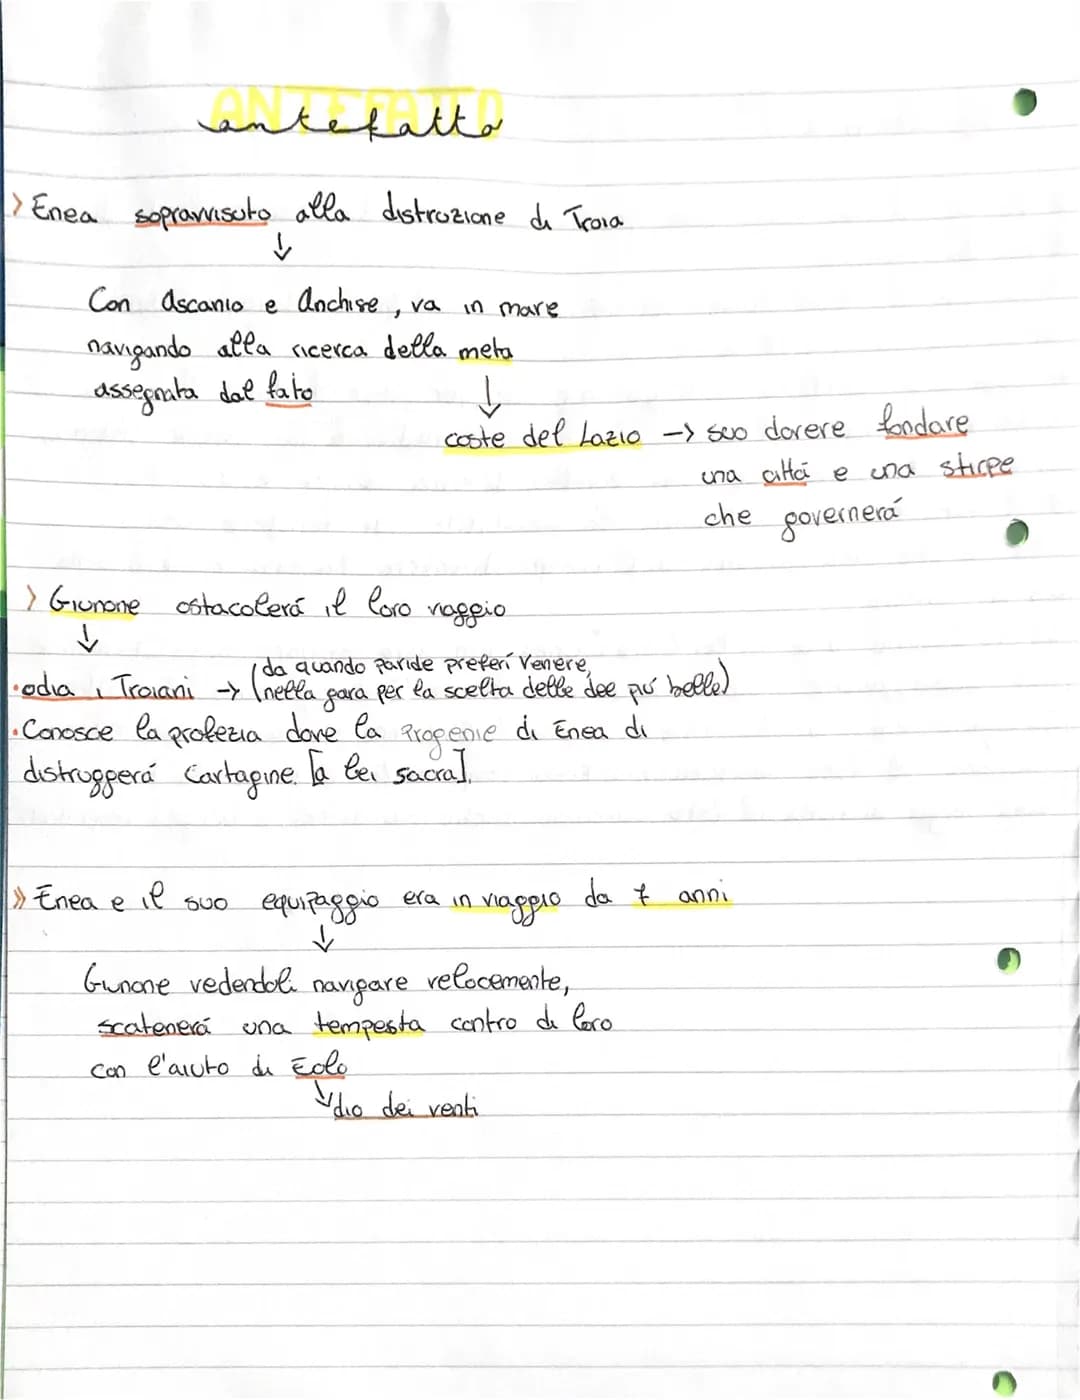 ANTEFATTO
antefatto
> Enea sopravvisuto alla distruzione di Troia
↓
Con Ascanio e Anchise, va in mare
navigando alla ricerca della meta
assegnata dal fato
↓
coste del Lazio -> suo dovere fondare
una cittá e una stirpe
che governerá
> Giunone ostacolerá il loro viaggio
↓
(da quando paride preferí Venere,
•odia i Troiani -> (nella gara per la scelta delle dee piú belle)
•Conosce la profezia dove la Progenie di Enea di
distruggerá Cartagine. [a lei sacra].
>> Enea e il suo equipaggio era in viaggio da 7 anni
↓
Giunone vedendoli navigare velocemente,
scatenerá una tempesta contro di loro
con l'aiuto di Eolo
↓ dio dei venti